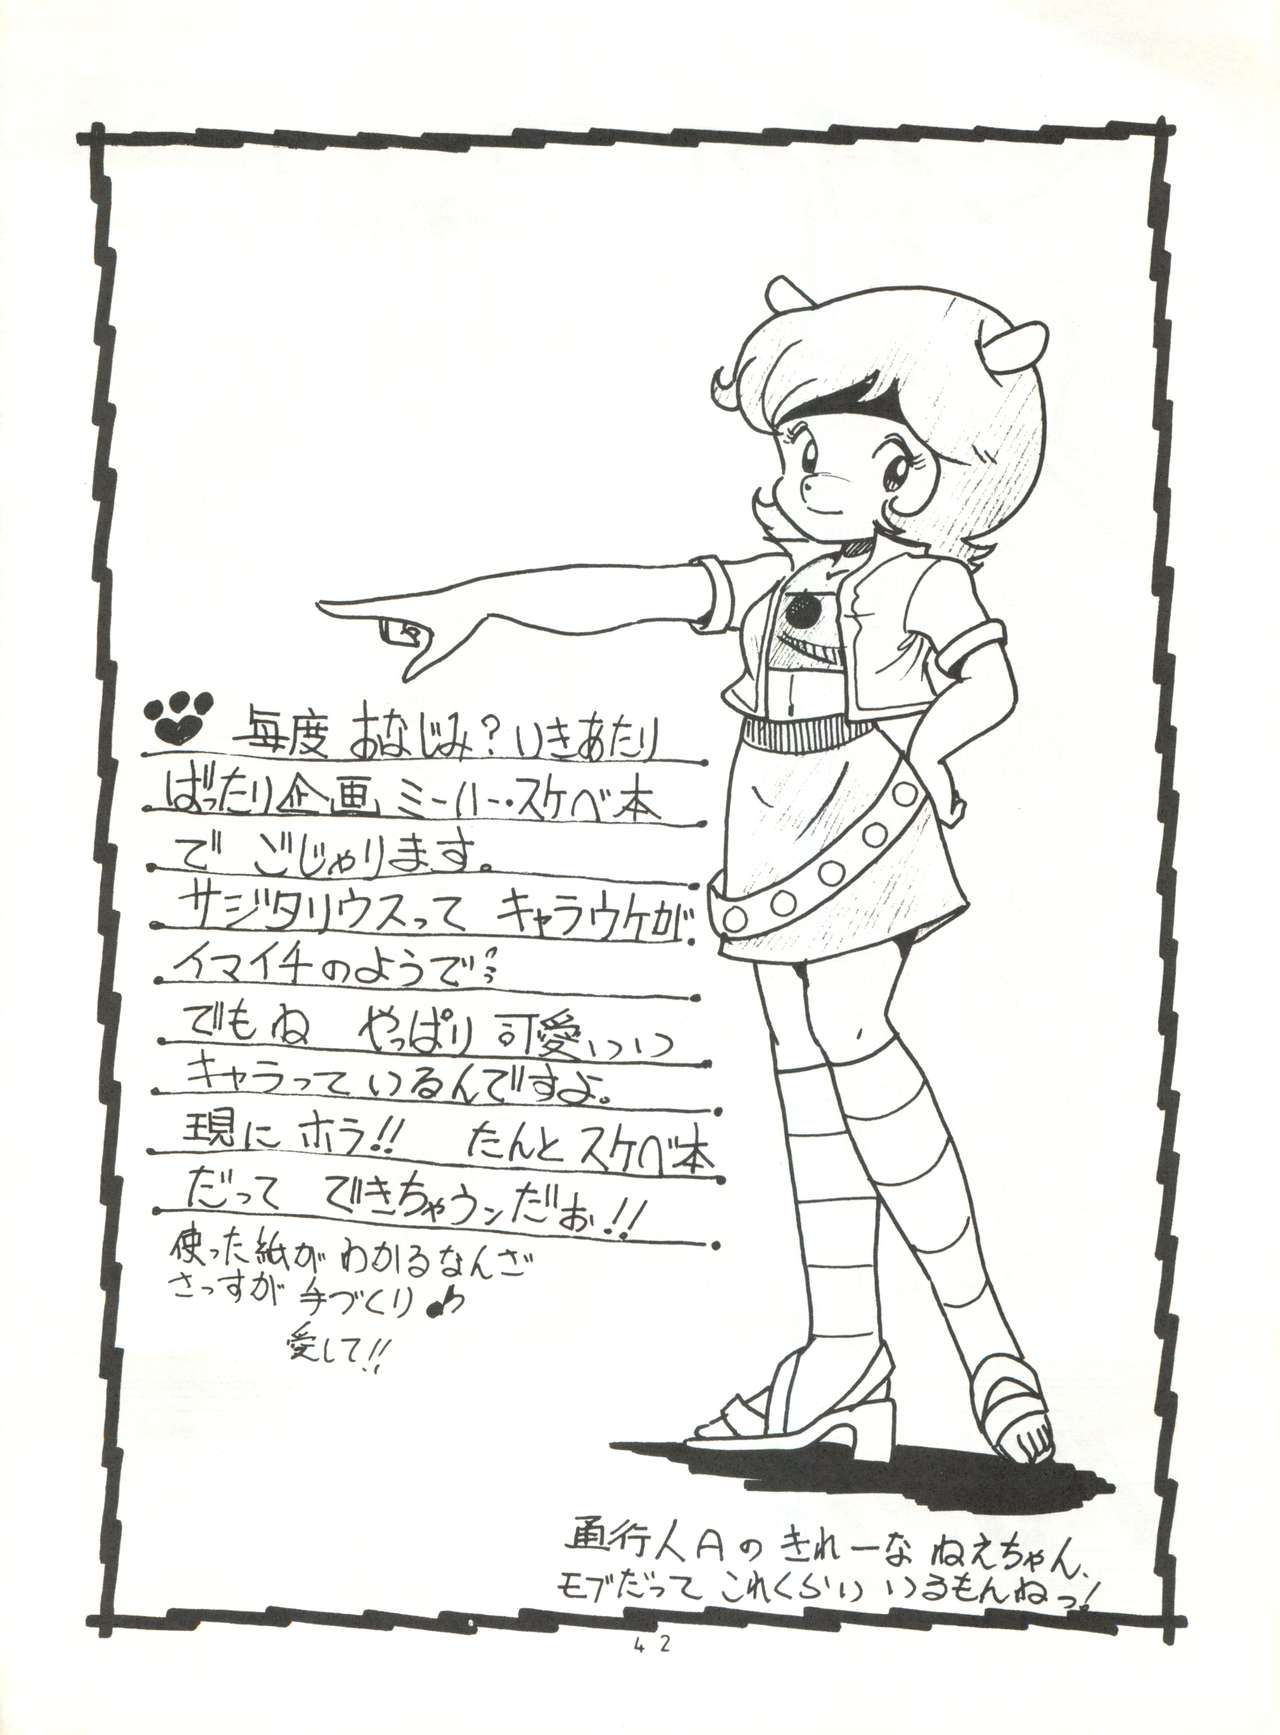 毎度 おなじみ?いきあたり
ばったり企画 ミーハー・スケベ本
で ごじゃります。
サジタリウスって キャラウケが
イマイチのようで
でもね やっぱり 可愛いいつ
キャラっているんですよ。
現に ホラ!! たんと スケベ本
だって できちゃうンだぉ!!
使った紙が わかるなんざ
さっすが 手づくり♪
愛して!!
通行人Aの きれーな ねえちゃん、
モブだって これくらい いるもんねっ!
42